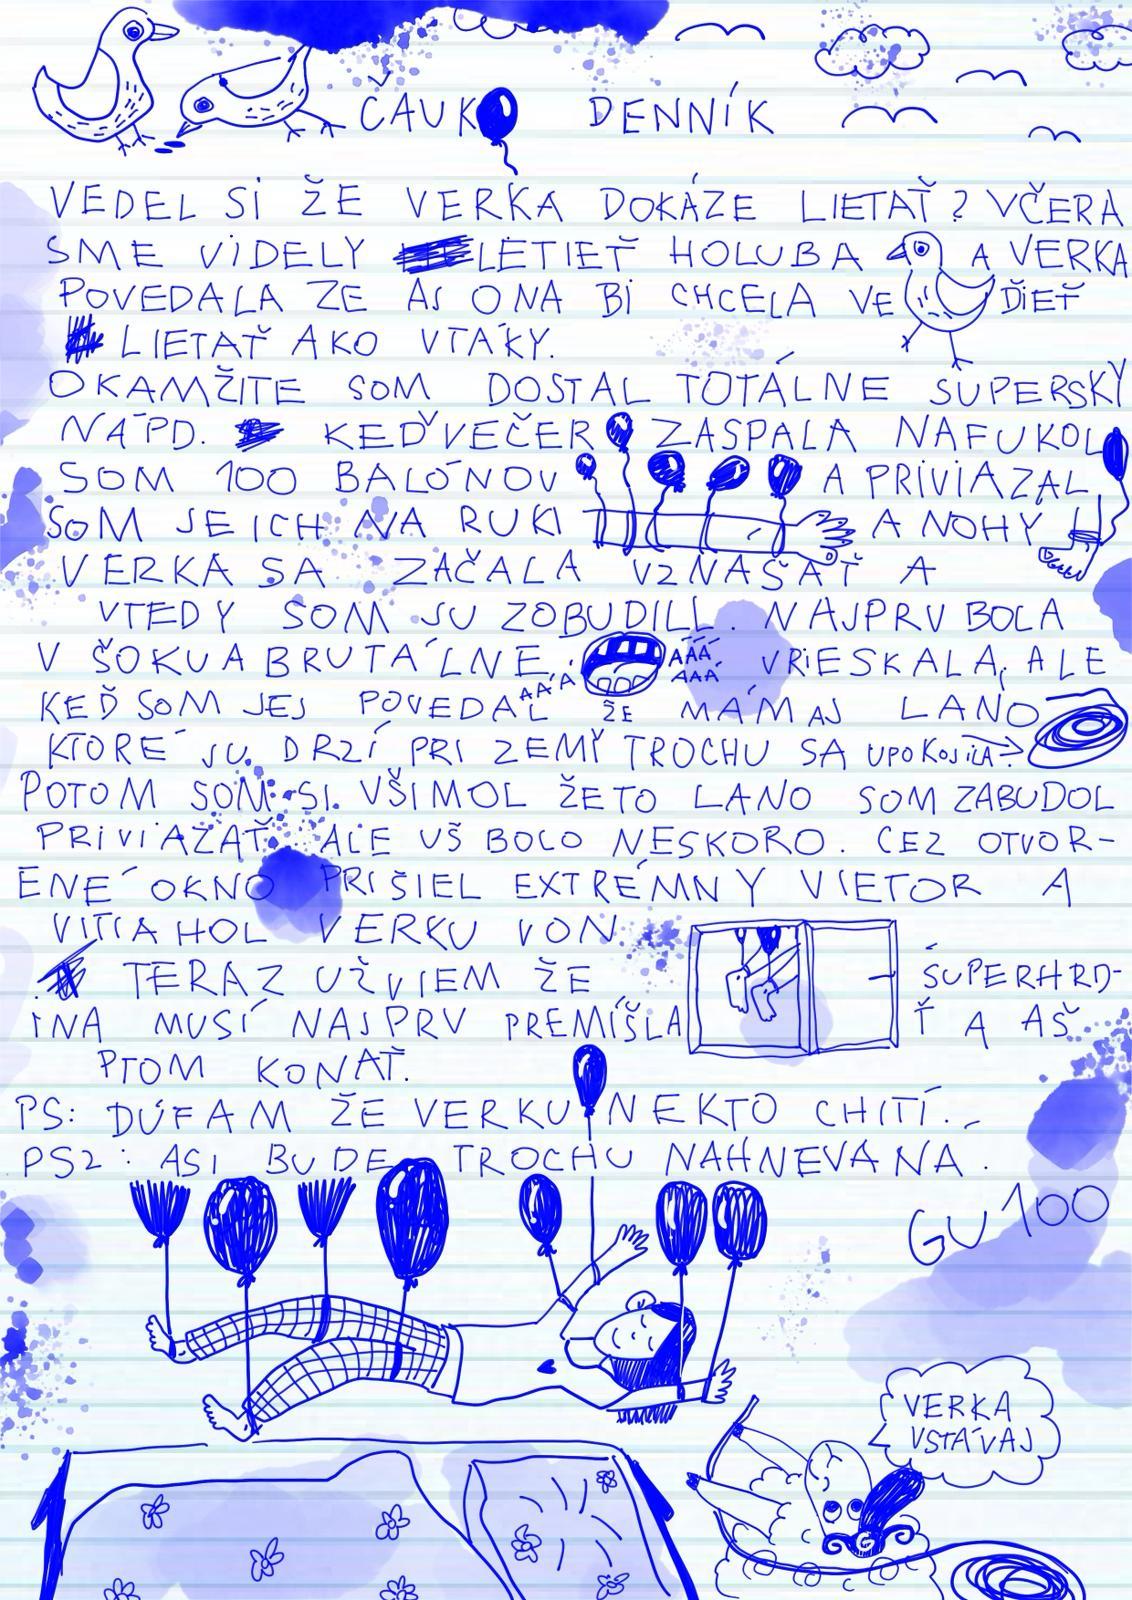 ČAUKO DENNÍK
VEDEL SI ŽE VERKA DOKÁZE LIETAŤ? VČERA
SME VIDELY LETIEŤ HOLUBA A VERKA
POVEDALA ZE AJ ONA BI CHCELA VEĎIEŤ
LIETAŤ AKO VTÁKY.
OKAMŽITE SOM DOSTAL TOTÁLNE SUPERSKÝ
NÁPD. KEĎ VEČER ZASPALA NAFUKOL
SOM 100 BALÓNOV A PRIVIAZAL
SOM JE ICH NA RUKI A NOHY
VERKA SA ZAČALA VZNÁŠAŤ A
VTEDY SOM JU ZOBUDILL. NAJPRV BOLA
V ŠOKU A BRUTÁLNE VRIESKALA, ALE
AAÁÁ
AAÁ
AÁÁ
KEĎ SOM JEJ POVEDAL ŽE MÁM AJ LANO
KTORÉ JU DRZÍ PRI ZEMI TROCHU SA UPOKOJILA.
POTOM SOM SI VŠIMOL ŽETO LANO SOM ZABUDOL
PRIVIAZAŤ ALE UŠ BOLO NESKORO. CEZ OTVOR-
ENÉ OKNO PRIŠIEL EXTRÉMNY VIETOR A
VITIAHOL VERKU VON
TERAZ UŽ VIEM ŽE SUPERHRD-
INA MUSÍ NAJPRV PREMÍŠLAŤ A AŠ
PTOM KONAŤ.
PS: DÚFAM ŽE VERKU NEKTO CHITÍ.
PS2: ASI BUDE TROCHU NAHNEVANA.
GU100
VERKA
VSTÁVAJ